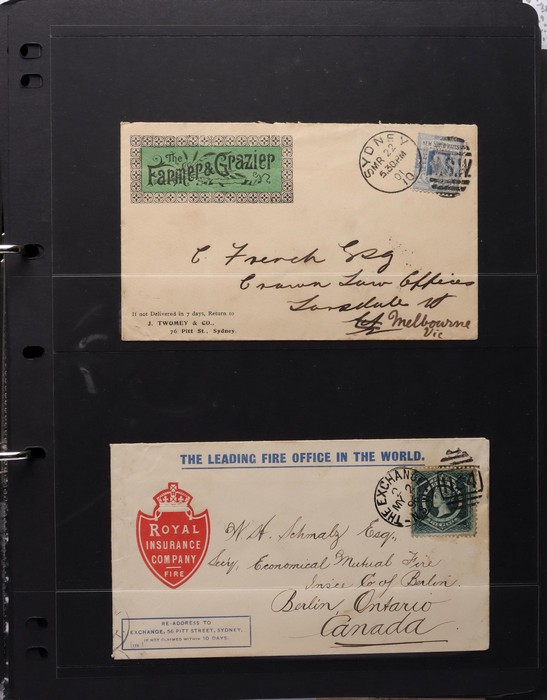 The
Farmer & Grazier
SYDNEY
MR 22
5.30 PM
01
10
N.S.W.
C French Esq
Crown Law Offices
Lonsdale St
Melbourne
Vic
If not Delivered in 7 days, Return to
J. TWOMEY & CO.,
76 Pitt St., Sydney.
THE LEADING FIRE OFFICE IN THE WORLD.
THE EXCHANGE
MY 2
ROYAL
INSURANCE
COMPANY
FIRE
W. H. Schmalz Esq.,
Secy, Economical Mutual Fire
Insce Co of Berlin.
Berlin, Ontario
Canada
RE-ADDRESS TO
EXCHANGE, 56 PITT STREET, SYDNEY.
IF NOT CLAIMED WITHIN 10 DAYS.